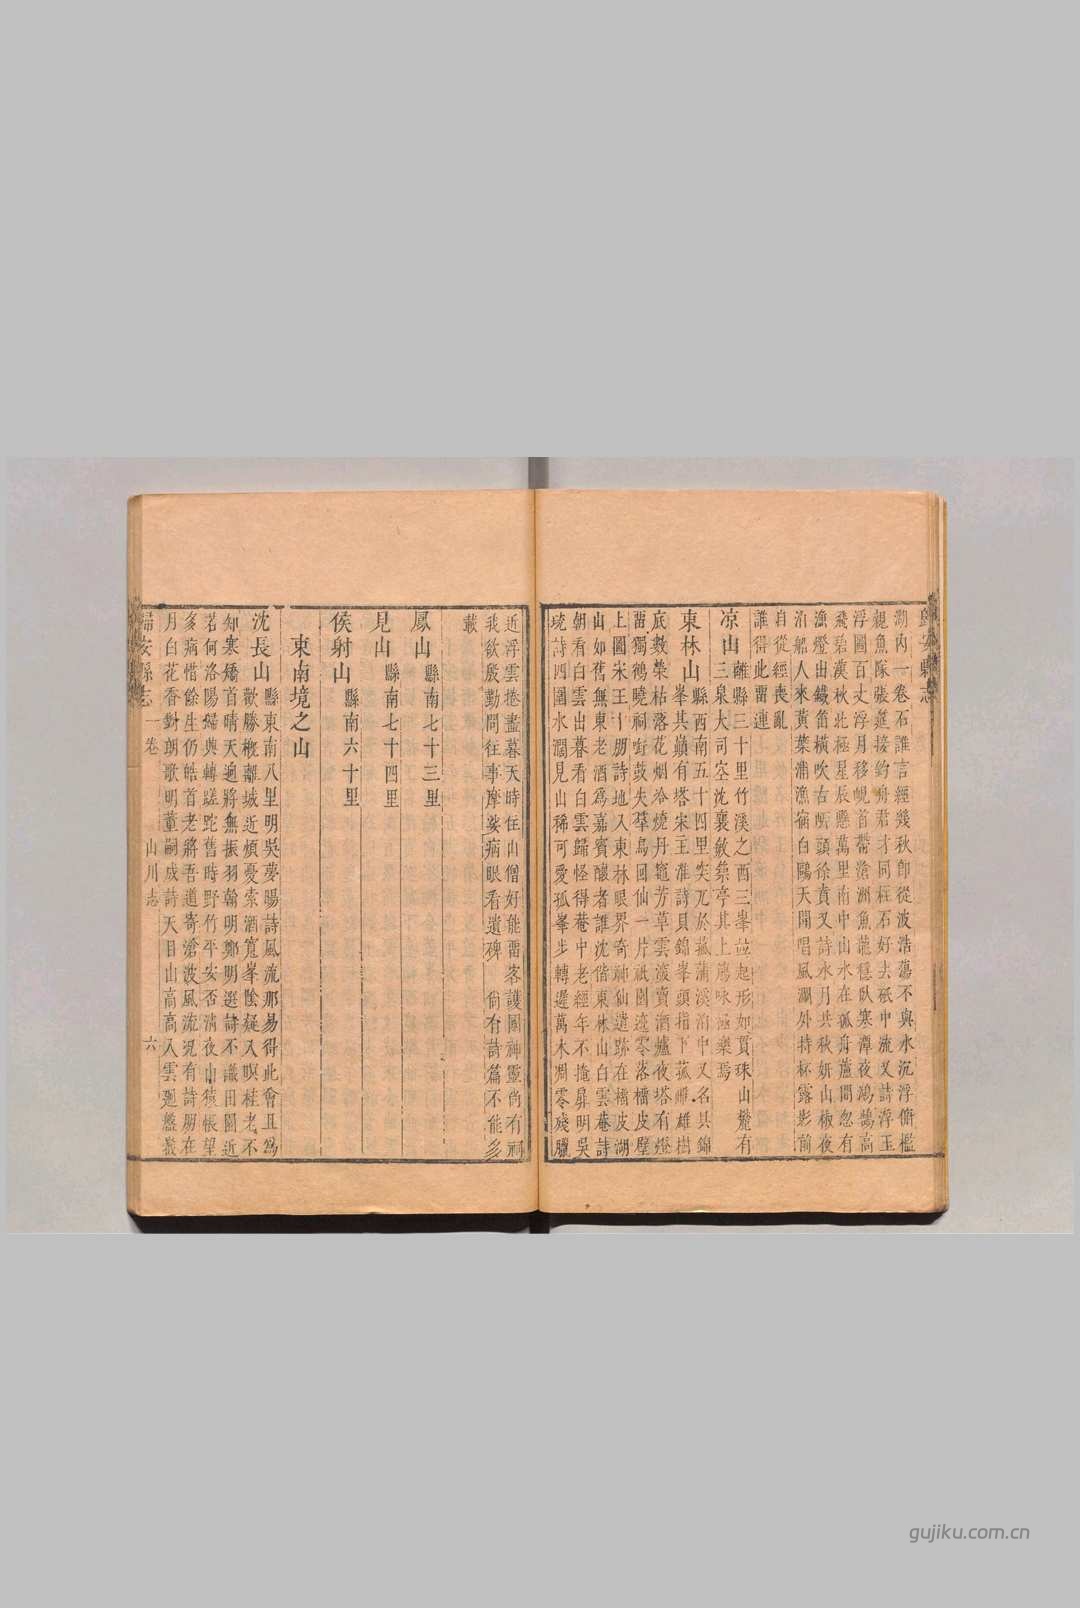 歸安縣志
湖內一卷石誰言經幾秋即從波浩蕩不與水沉浮俯檻
親魚隊張筵接釣舟君才同柱石好去砥中流又詩浮玉
浮圖百丈浮月移峴首帶滄洲魚龍穩臥寒潭夜鴻鵠高
飛碧漢秋北極星辰懸萬里南中山水在孤舟蘆間忽有
漁燈出鐵笛橫吹古岍頭徐賁又詩水月共秋妍山椒夜
泊船人來黃葉浦漁宿白鷗天開唱風瀾外持杯露影前
自從經喪亂
誰得此畱連
凉山 離縣三十里竹溪之西三峯竝起形如貫珠山麓有
三泉大司空沈襄敏築亭其上觴咏極樂焉
東林山 縣西南五十四里突兀於菰蒲溪泊中又名具錦
峯其巔有塔宋王淮詩貝錦峯頭指下菰
底數榮枯落花烟冷燒丹竈芳草雲渡賣酒爐夜塔有燈
畱獨鶴曉祠
上圖宋王十朋詩地入東林眼界奇神仙遺跡在橘皮湖
山如舊無東老酒爲嘉賓釀者誰沈偕東林山白雲菴詩
朝看白雲出暮看白雲歸怪得菴中老經年不掩扉明吳
珫詩四圍水濶見山稀可愛孤峯步轉遲萬木凋零殘臘
近浮雲捲盡暮天時住山僧好能畱客護國神靈尚有祠
我欲殷勤問往事摩娑病眼看遺碑 尙有詩篇不能多
載
鳳山 縣南七十三里
見山 縣南七十四里
侯射山 縣南六十里
東南境之山
沈長山 縣東南八里明吳夢暘詩風流那易得此會且爲
歡勝槪離城近煩憂索酒寬峯陰疑入暝桂老不
知寒矯首晴天逈將無振羽翰明鄭明選詩不識田園近
若何洛陽歸興轉蹉跎舊時野竹平安否淸夜山猿悵望
多病惜餘生仍皓首老將吾道寄滄波風流況有詩朋在
月白花香對朗歌明董嗣成詩天目山高高入雲廻盤幾
歸安縣志 一卷 山川志 六
gujiku.com.cn